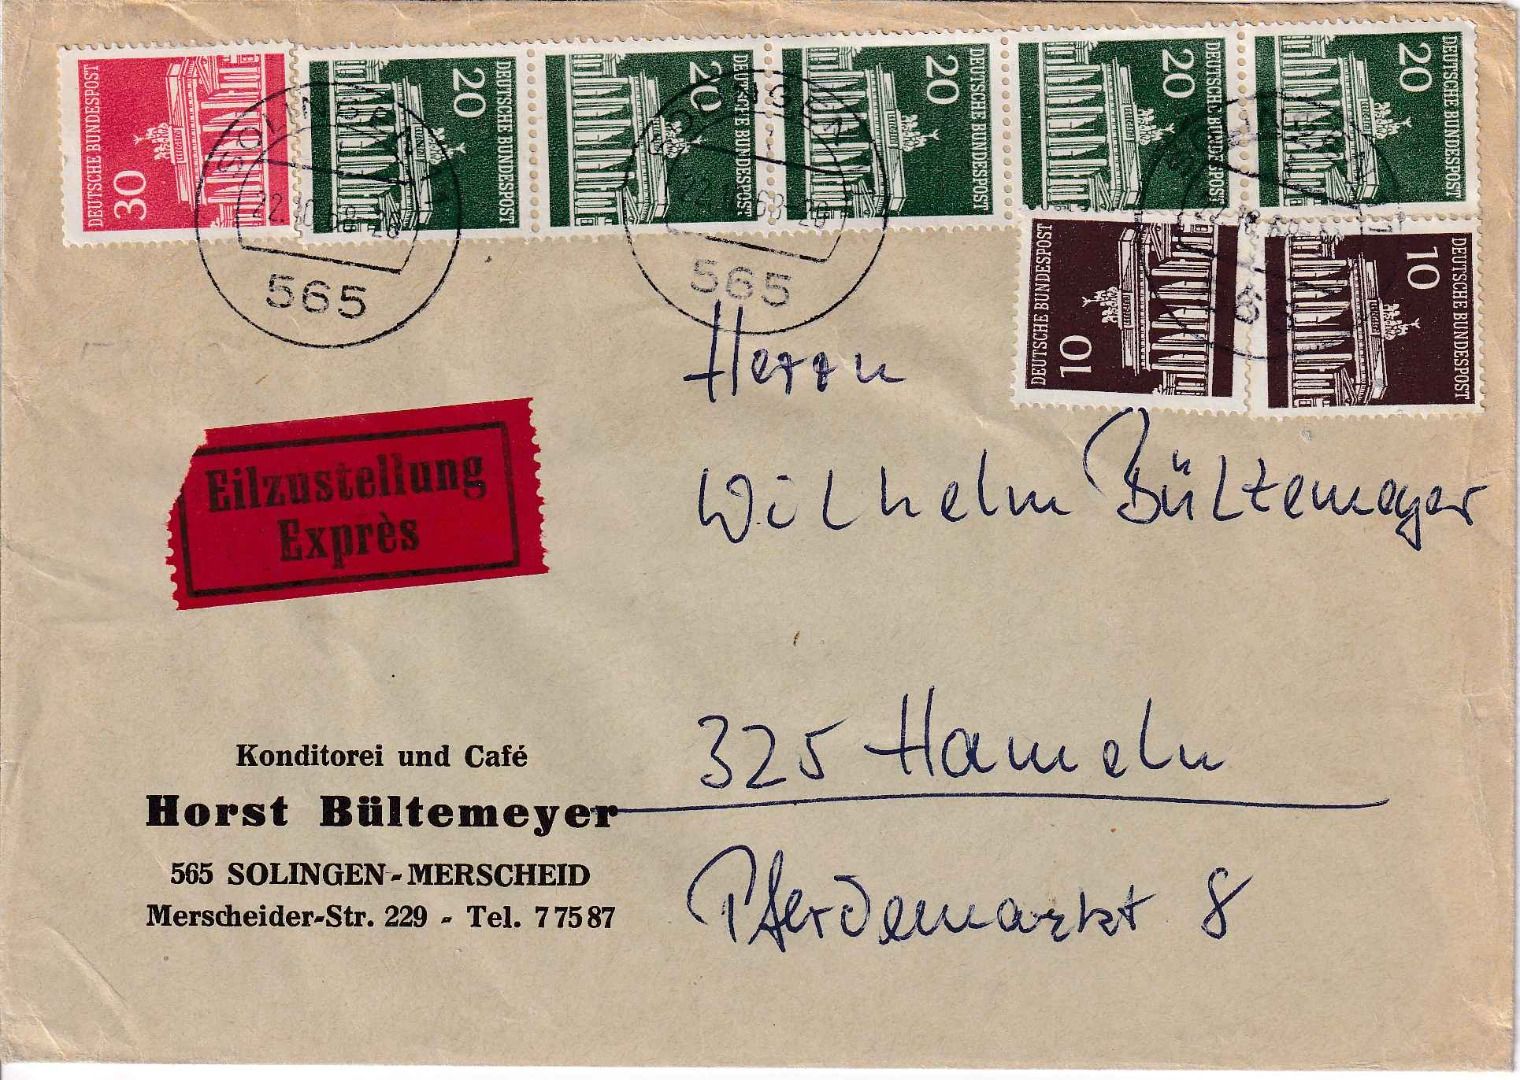 DEUTSCHE BUNDESPOST
30
20
DEUTSCHE BUNDESPOST
20
DEUTSCHE BUNDESPOST
20
DEUTSCHE BUNDESPOST
20
DEUTSCHE BUNDESPOST
20
DEUTSCHE BUNDESPOST
SOLINGEN 11
22.10.68-20
565
SOLINGEN
22.10.68-20
565
DEUTSCHE BUNDESPOST
10
10
DEUTSCHE BUNDESPOST
Herrn
Wilhelm Bültemeyer
Eilzustellung
Exprès
325 Hameln
Pferdemarkt 8
Konditorei und Café
Horst Bültemeyer
565 SOLINGEN-MERSCHEID
Merscheider-Str. 229 - Tel. 77587